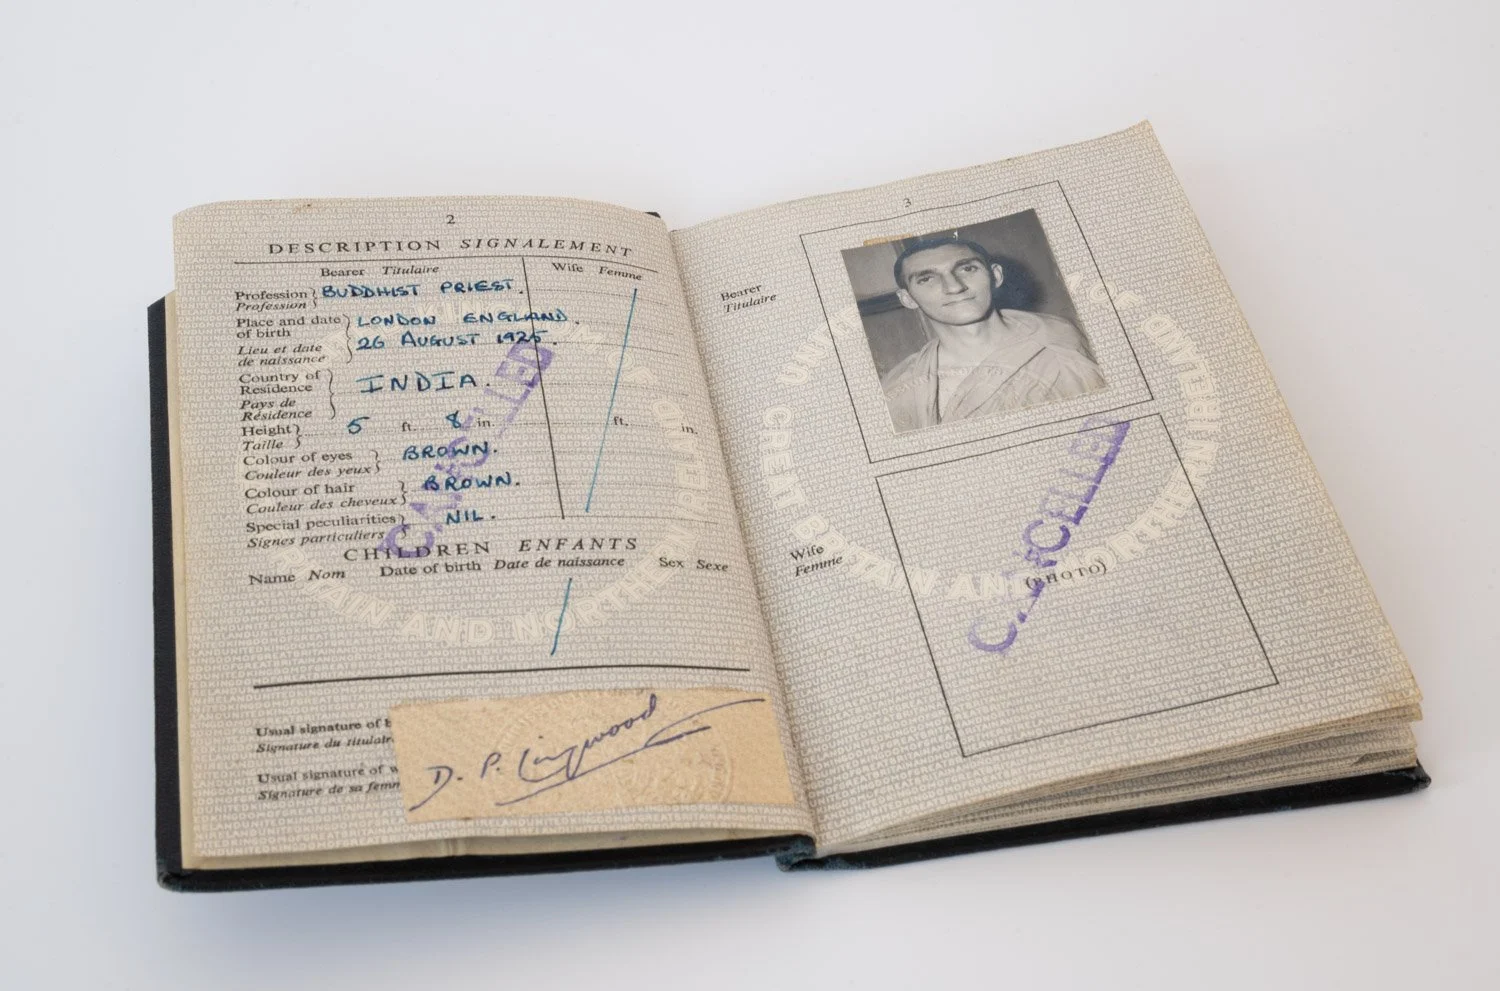 2
DESCRIPTION SIGNALEMENT
Bearer Titulaire
Wife Femme
Profession BUDDHIST PRIEST.
Profession
Place and date LONDON ENGLAND.
of birth
Lieu et date 26 AUGUST 1925.
de naissance
Country of
Residence INDIA.
Pays de
Résidence
Height 5 ft. 8 in. ft. in.
Taille
Colour of eyes BROWN.
Couleur des yeux
Colour of hair BROWN.
Couleur des cheveux
Special peculiarities NIL.
Signes particuliers
CANCELLED
CHILDREN ENFANTS
Name Nom Date of birth Date de naissance Sex Sexe
Usual signature of
Signature du titulair
Usual signature of
Signature de sa femm
D. P. Lingwood
3
Bearer
Titulaire
Wife
Femme
(PHOTO)
CANCELLED
UNITED KINGDOM OF GREAT BRITAIN AND NORTHERN IRELAND